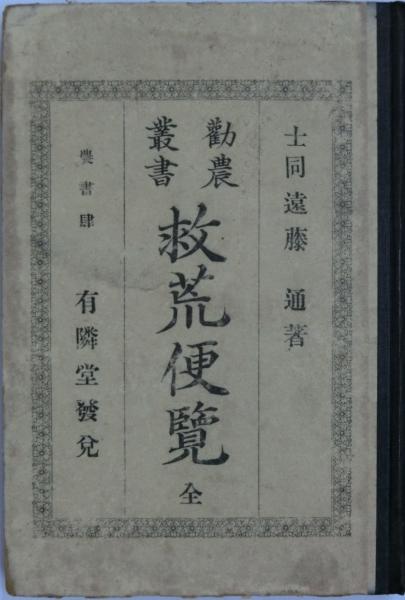 士同遠藤 通著
勸農
叢書
救荒便覽 全
農書肆 有隣堂發兌